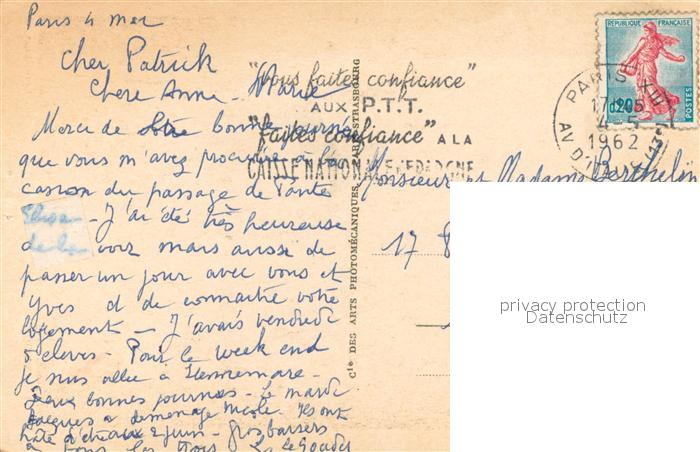 Paris 4 mai
Cher Patrick
Chère Anne-Marie
Merci de bonne journée
que vous m'avez procurée à l'oc
casion du passage de Tante
J'ai été très heureuse
de la voir mais aussi de
passer un jour avec vous et
Yves et de connaitre votre
logement - J'avais vendredi
5 élèves - Pour le week end
je suis allée à
Deux bonnes journées - Le mardi
Jacques a déménagé Nicole. Ils ont
hâte d'être au 2 juin - Gros baisers
à vous les trois
"Vous faites confiance"
AUX P.T.T.
"faites confiance" A LA
CAISSE NATIONALE D'EPARGNE
REPUBLIQUE FRANÇAISE
0,20
POSTES
PARIS XIII
17H05
4-5
1962
Monsieur et Madame Berthelin
17
Cie DES ARTS PHOTOMÉCANIQUES STRASBOURG
privacy protection
Datenschutz